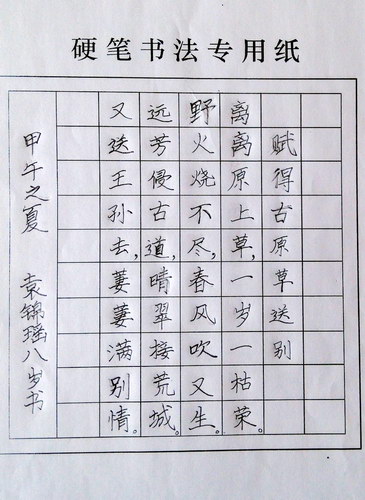 硬笔书法专用纸
赋得古原草送别
离离原上草,一岁一枯荣。
野火烧不尽,春风吹又生。
远芳侵古道,晴翠接荒城。
又送王孙去,萋萋满别情。
甲午之夏 袁锦瑶八岁书